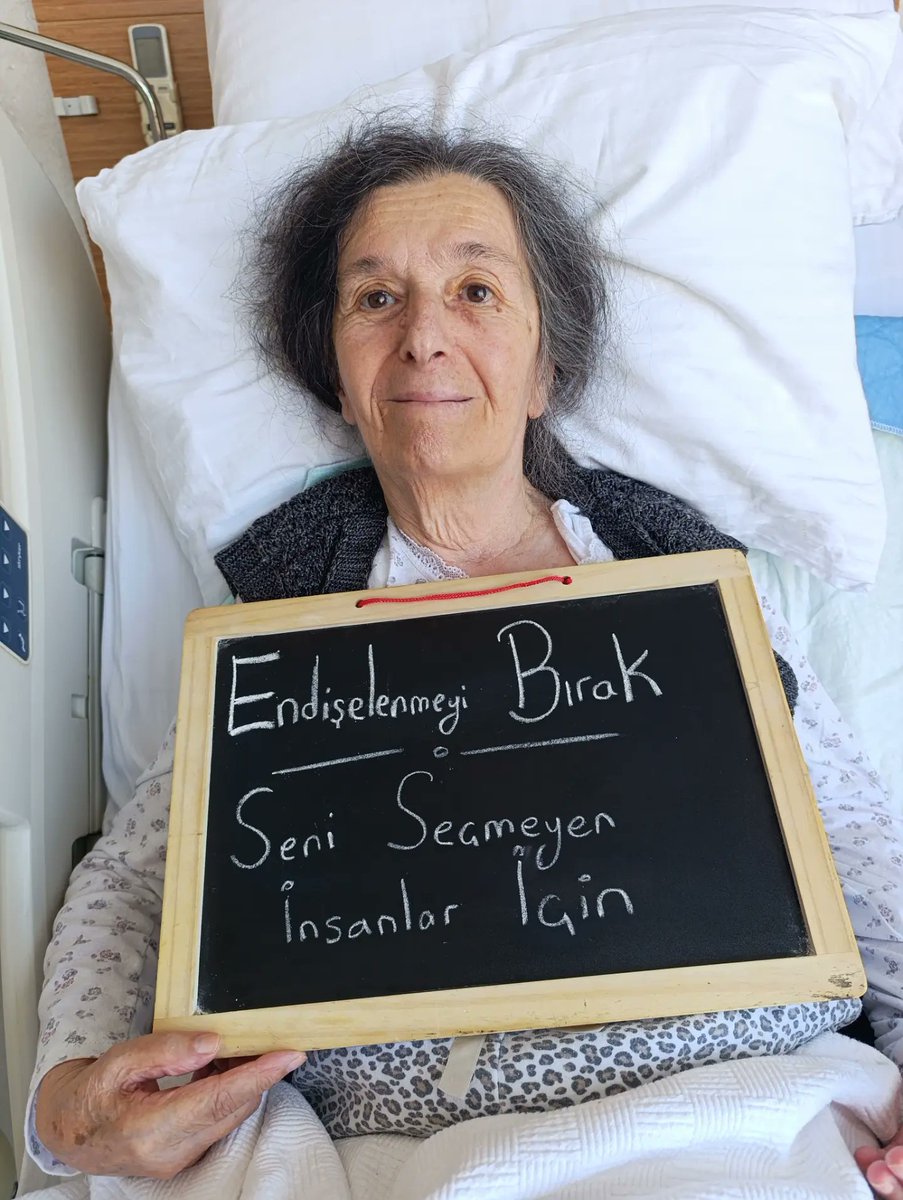 Endişelenmeyi Bırak
Seni Seçmeyen
İnsanlar İçin